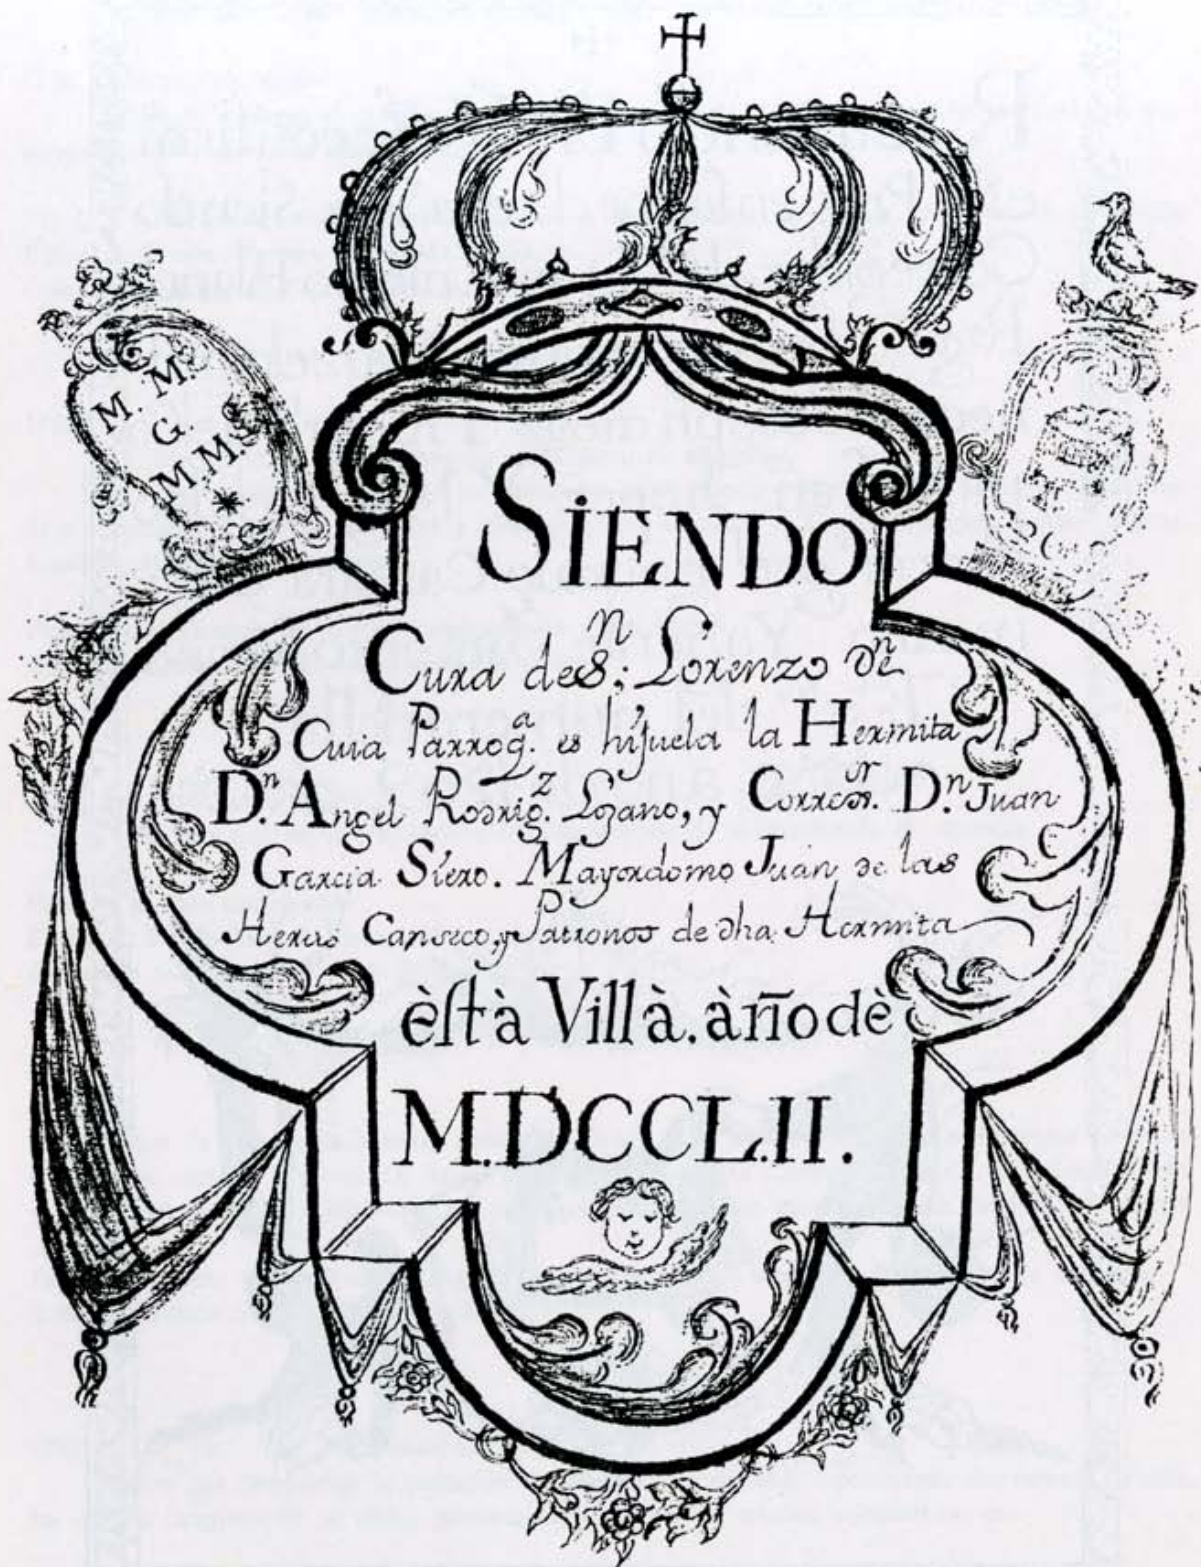 M. M.
G.
M. M.
SIENDO
Cura de S.n Lorenzo de
Cuia Parroq.a es hijuela la Hermita
D.n Angel Rodrig.z Lozano, y Corre.or D.n Juan
Garcia Siero. Mayordomo Juan de las
Heras Canseco, y Patronos de dha Hermita
èſtà Villà. àño dè
M.DCCL.II.